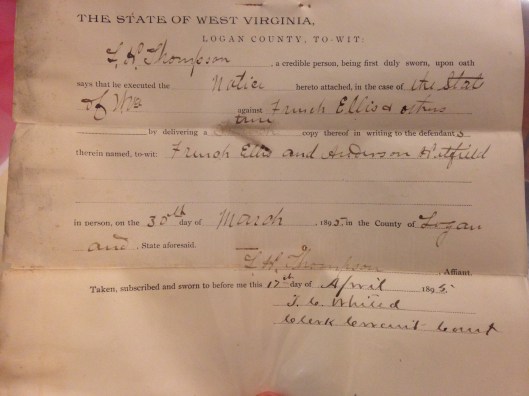 THE STATE OF WEST VIRGINIA,
LOGAN COUNTY, TO-WIT:
Thompson, a credible person, being first duly sworn, upon oath
says that he executed the Notice hereto attached, in the case of the State
of against French Ellis & others
true
by delivering a copy thereof in writing to the defendants
therein named, to-wit: French Ellis and Anderson Hatfield
in person, on the 30th day of March, 1895, in the County of Logan
and State aforesaid.
Thompson, Affiant.
Taken, subscribed and sworn to before me this 17th day of April 1895.
Whited
Clerk Circuit Court